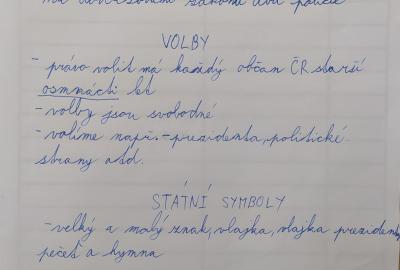 VOLBY
- právo volit má každý občan ČR starší
osmnácti let
- volby jsou svobodné
- volíme např. - prezidenta, politické
strany atd.
STÁTNÍ SYMBOLY
- velký a malý znak, vlajka, vlajka prezidenta,
pečeť a hymna